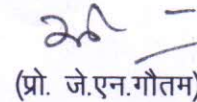 (प्रो. जे.एन.गौतम)